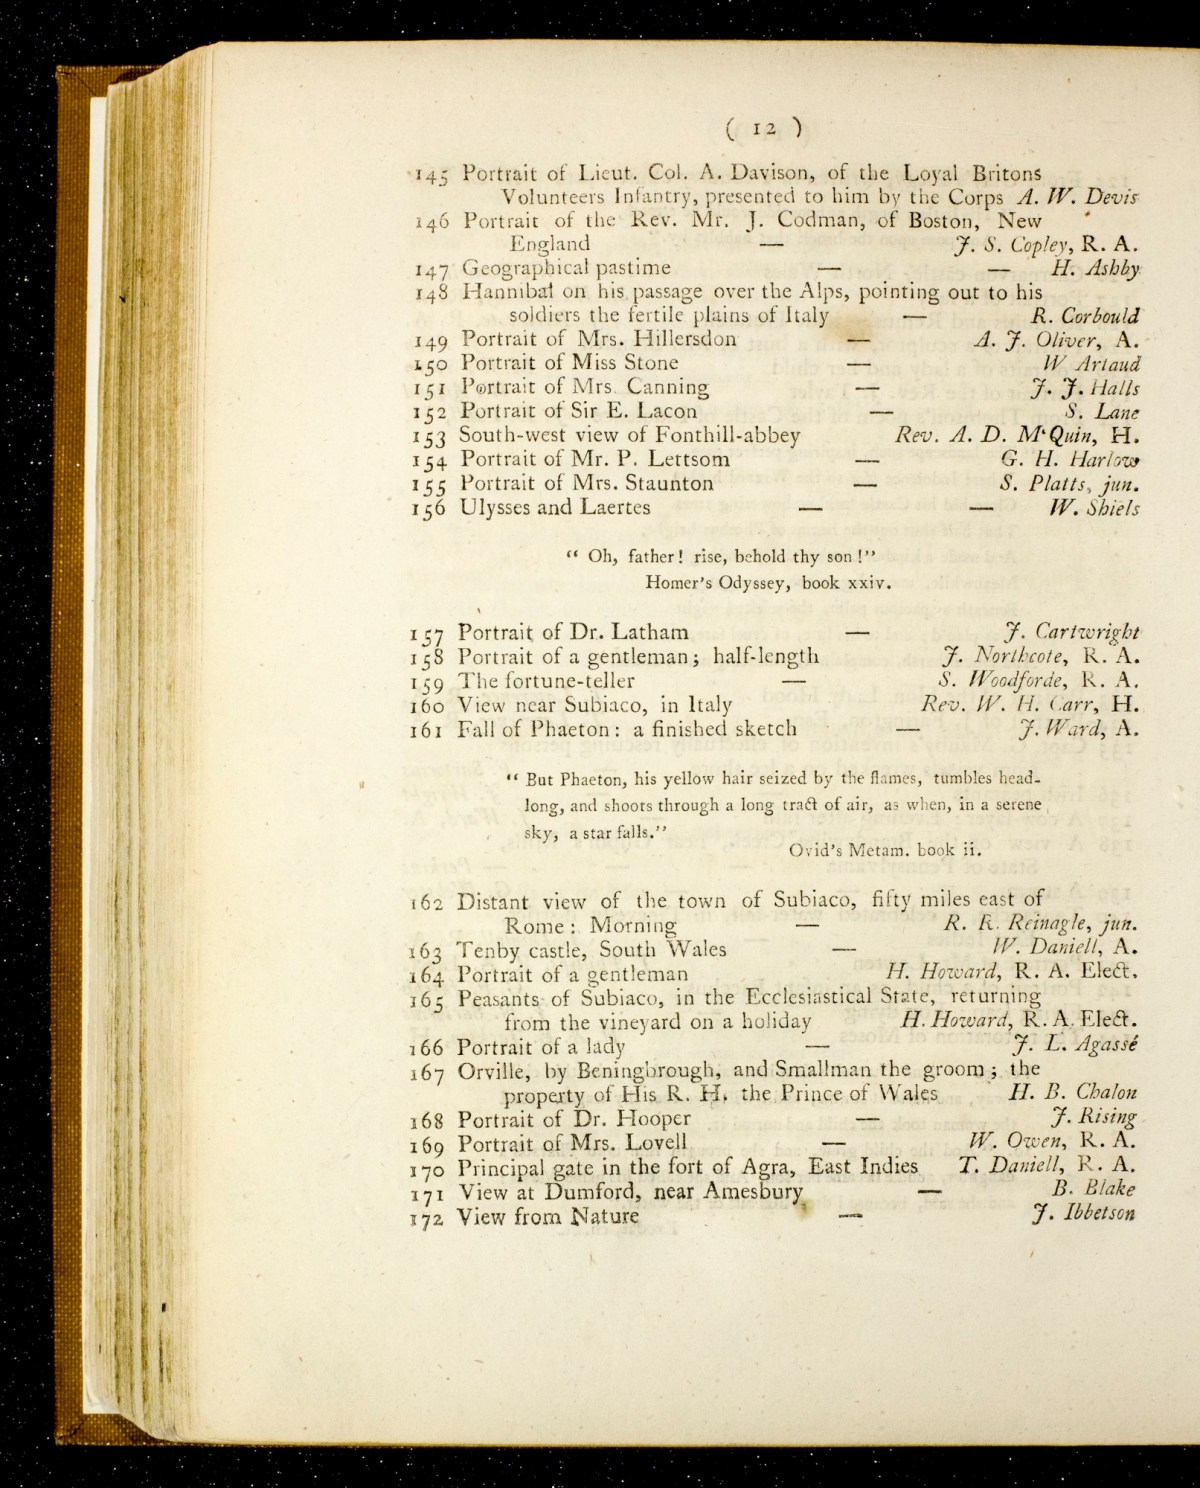 ( 12 )
145 Portrait of Lieut. Col. A. Davison, of the Loyal Britons
Volunteers Infantry, presented to him by the Corps A. W. Devis
146 Portrait of the Rev. Mr. J. Codman, of Boston, New
England — J. S. Copley, R. A.
147 Geographical pastime — — H. Ashby
148 Hannibal on his passage over the Alps, pointing out to his
soldiers the fertile plains of Italy — R. Corbould
149 Portrait of Mrs. Hillersdon — A. J. Oliver, A.
150 Portrait of Miss Stone — W. Artaud
151 Portrait of Mrs. Canning — J. J. Halls
152 Portrait of Sir E. Lacon — S. Lane
153 South-west view of Fonthill-abbey Rev. A. D. M‘Quin, H.
154 Portrait of Mr. P. Lettsom — G. H. Harlow
155 Portrait of Mrs. Staunton — S. Platts, jun.
156 Ulysses and Laertes — — W. Shiels
“ Oh, father! rise, behold thy son!”
Homer's Odyssey, book xxiv.
157 Portrait of Dr. Latham — J. Cartwright
158 Portrait of a gentleman; half-length J. Northcote, R. A.
159 The fortune-teller — S. Woodforde, R. A.
160 View near Subiaco, in Italy Rev. W. H. Carr, H.
161 Fall of Phaeton: a finished sketch — J. Ward, A.
“ But Phaeton, his yellow hair seized by the flames, tumbles head-
long, and shoots through a long tract of air, as when, in a serene
sky, a star falls.”
Ovid's Metam. book ii.
162 Distant view of the town of Subiaco, fifty miles east of
Rome: Morning — R. R. Reinagle, jun.
163 Tenby castle, South Wales — W. Daniell, A.
164 Portrait of a gentleman H. Howard, R. A. Elect.
165 Peasants of Subiaco, in the Ecclesiastical State, returning
from the vineyard on a holiday H. Howard, R. A. Elect.
166 Portrait of a lady — J. L. Agassé
167 Orville, by Beningbrough, and Smallman the groom; the
property of His R. H. the Prince of Wales H. B. Chalon
168 Portrait of Dr. Hooper — J. Rising
169 Portrait of Mrs. Lovell — W. Owen, R. A.
170 Principal gate in the fort of Agra, East Indies T. Daniell, R. A.
171 View at Dumford, near Amesbury — B. Blake
172 View from Nature — J. Ibbetson